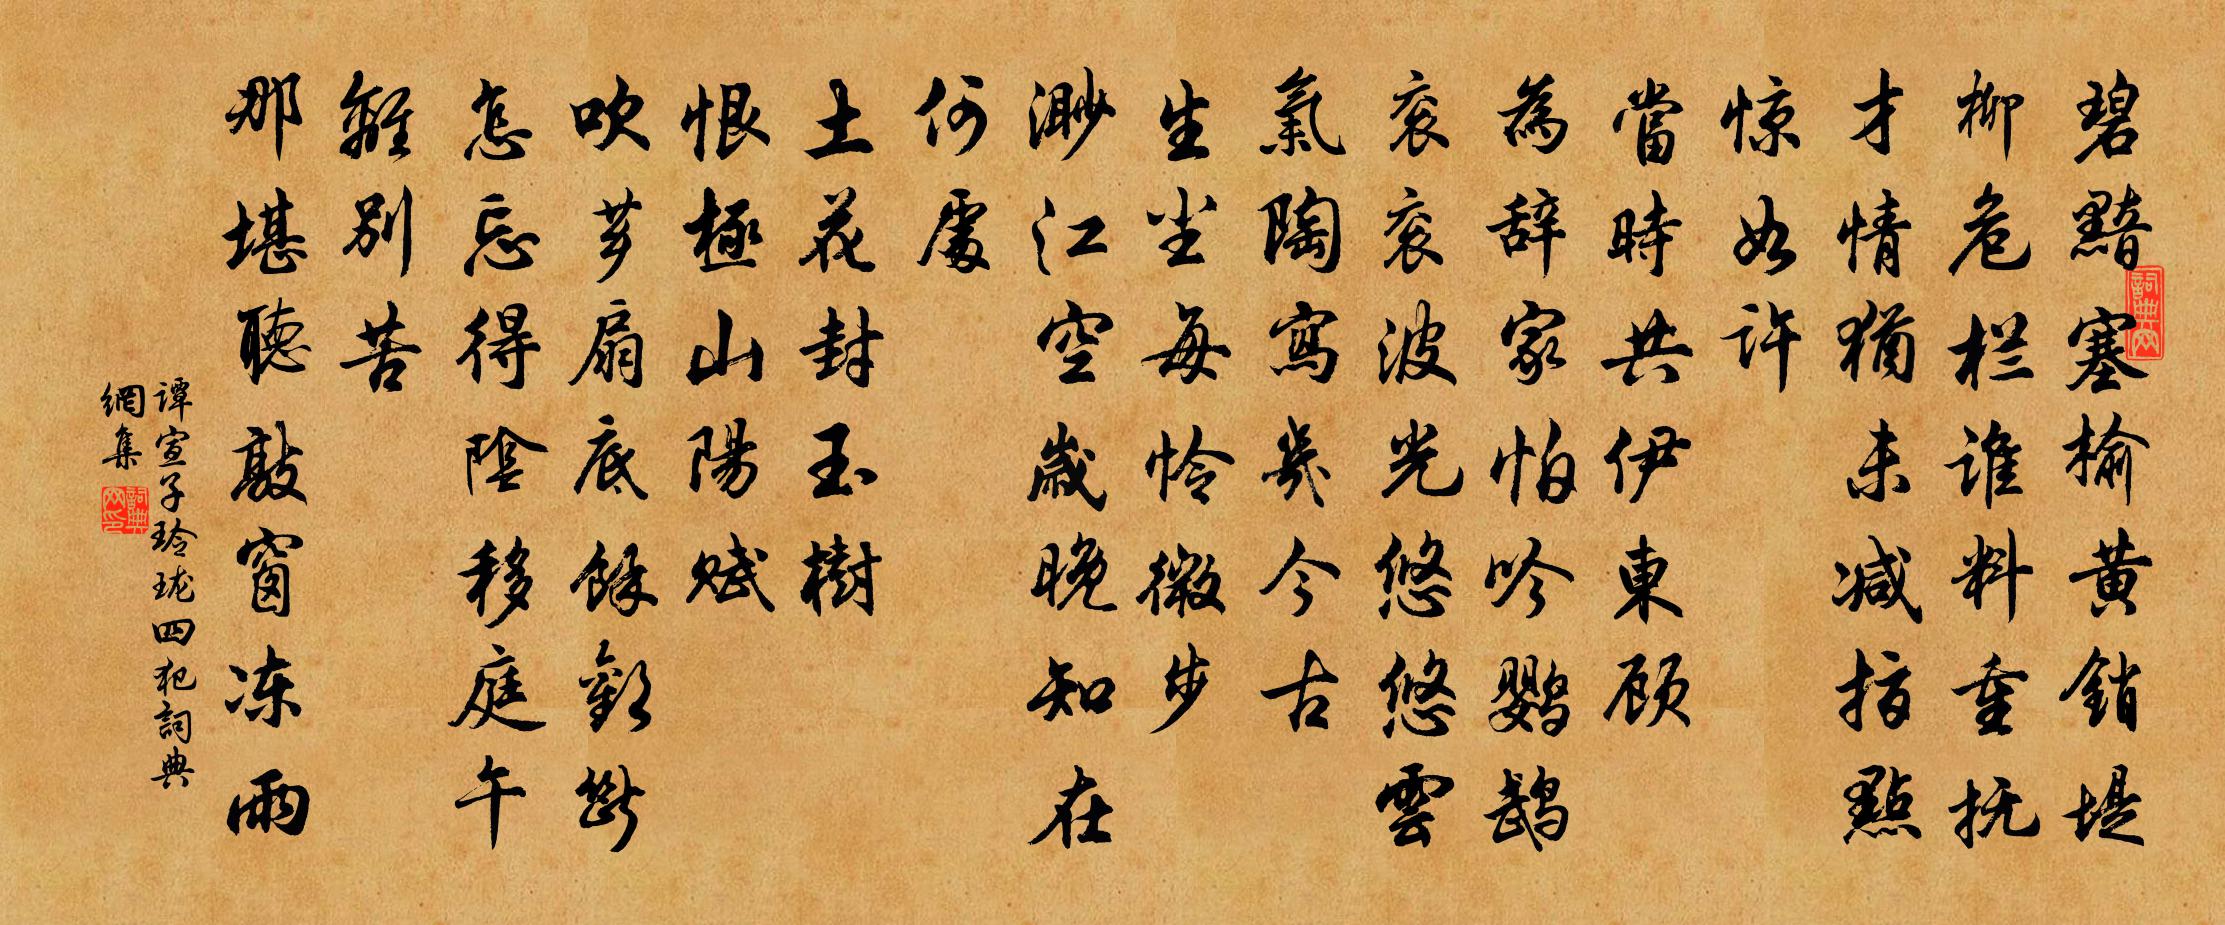 碧黯塞榆黃銷堤
柳危栏谁料重抚
才情猶未减指點
惊如許
當時共伊東顾
為辞家怕吟鹦鹉
衮衮波光悠悠雲
氣陶寫幾今古
生尘每怜微步
渺江空歲晚知在
何處
土花封玉樹
恨極山陽赋
吹芗扇底餘歡斷
怎忘得陰移庭午
離别苦
那堪聽敲窗冻雨
谭宣子玲珑四犯詞典
網集
詞典网
詞典网印